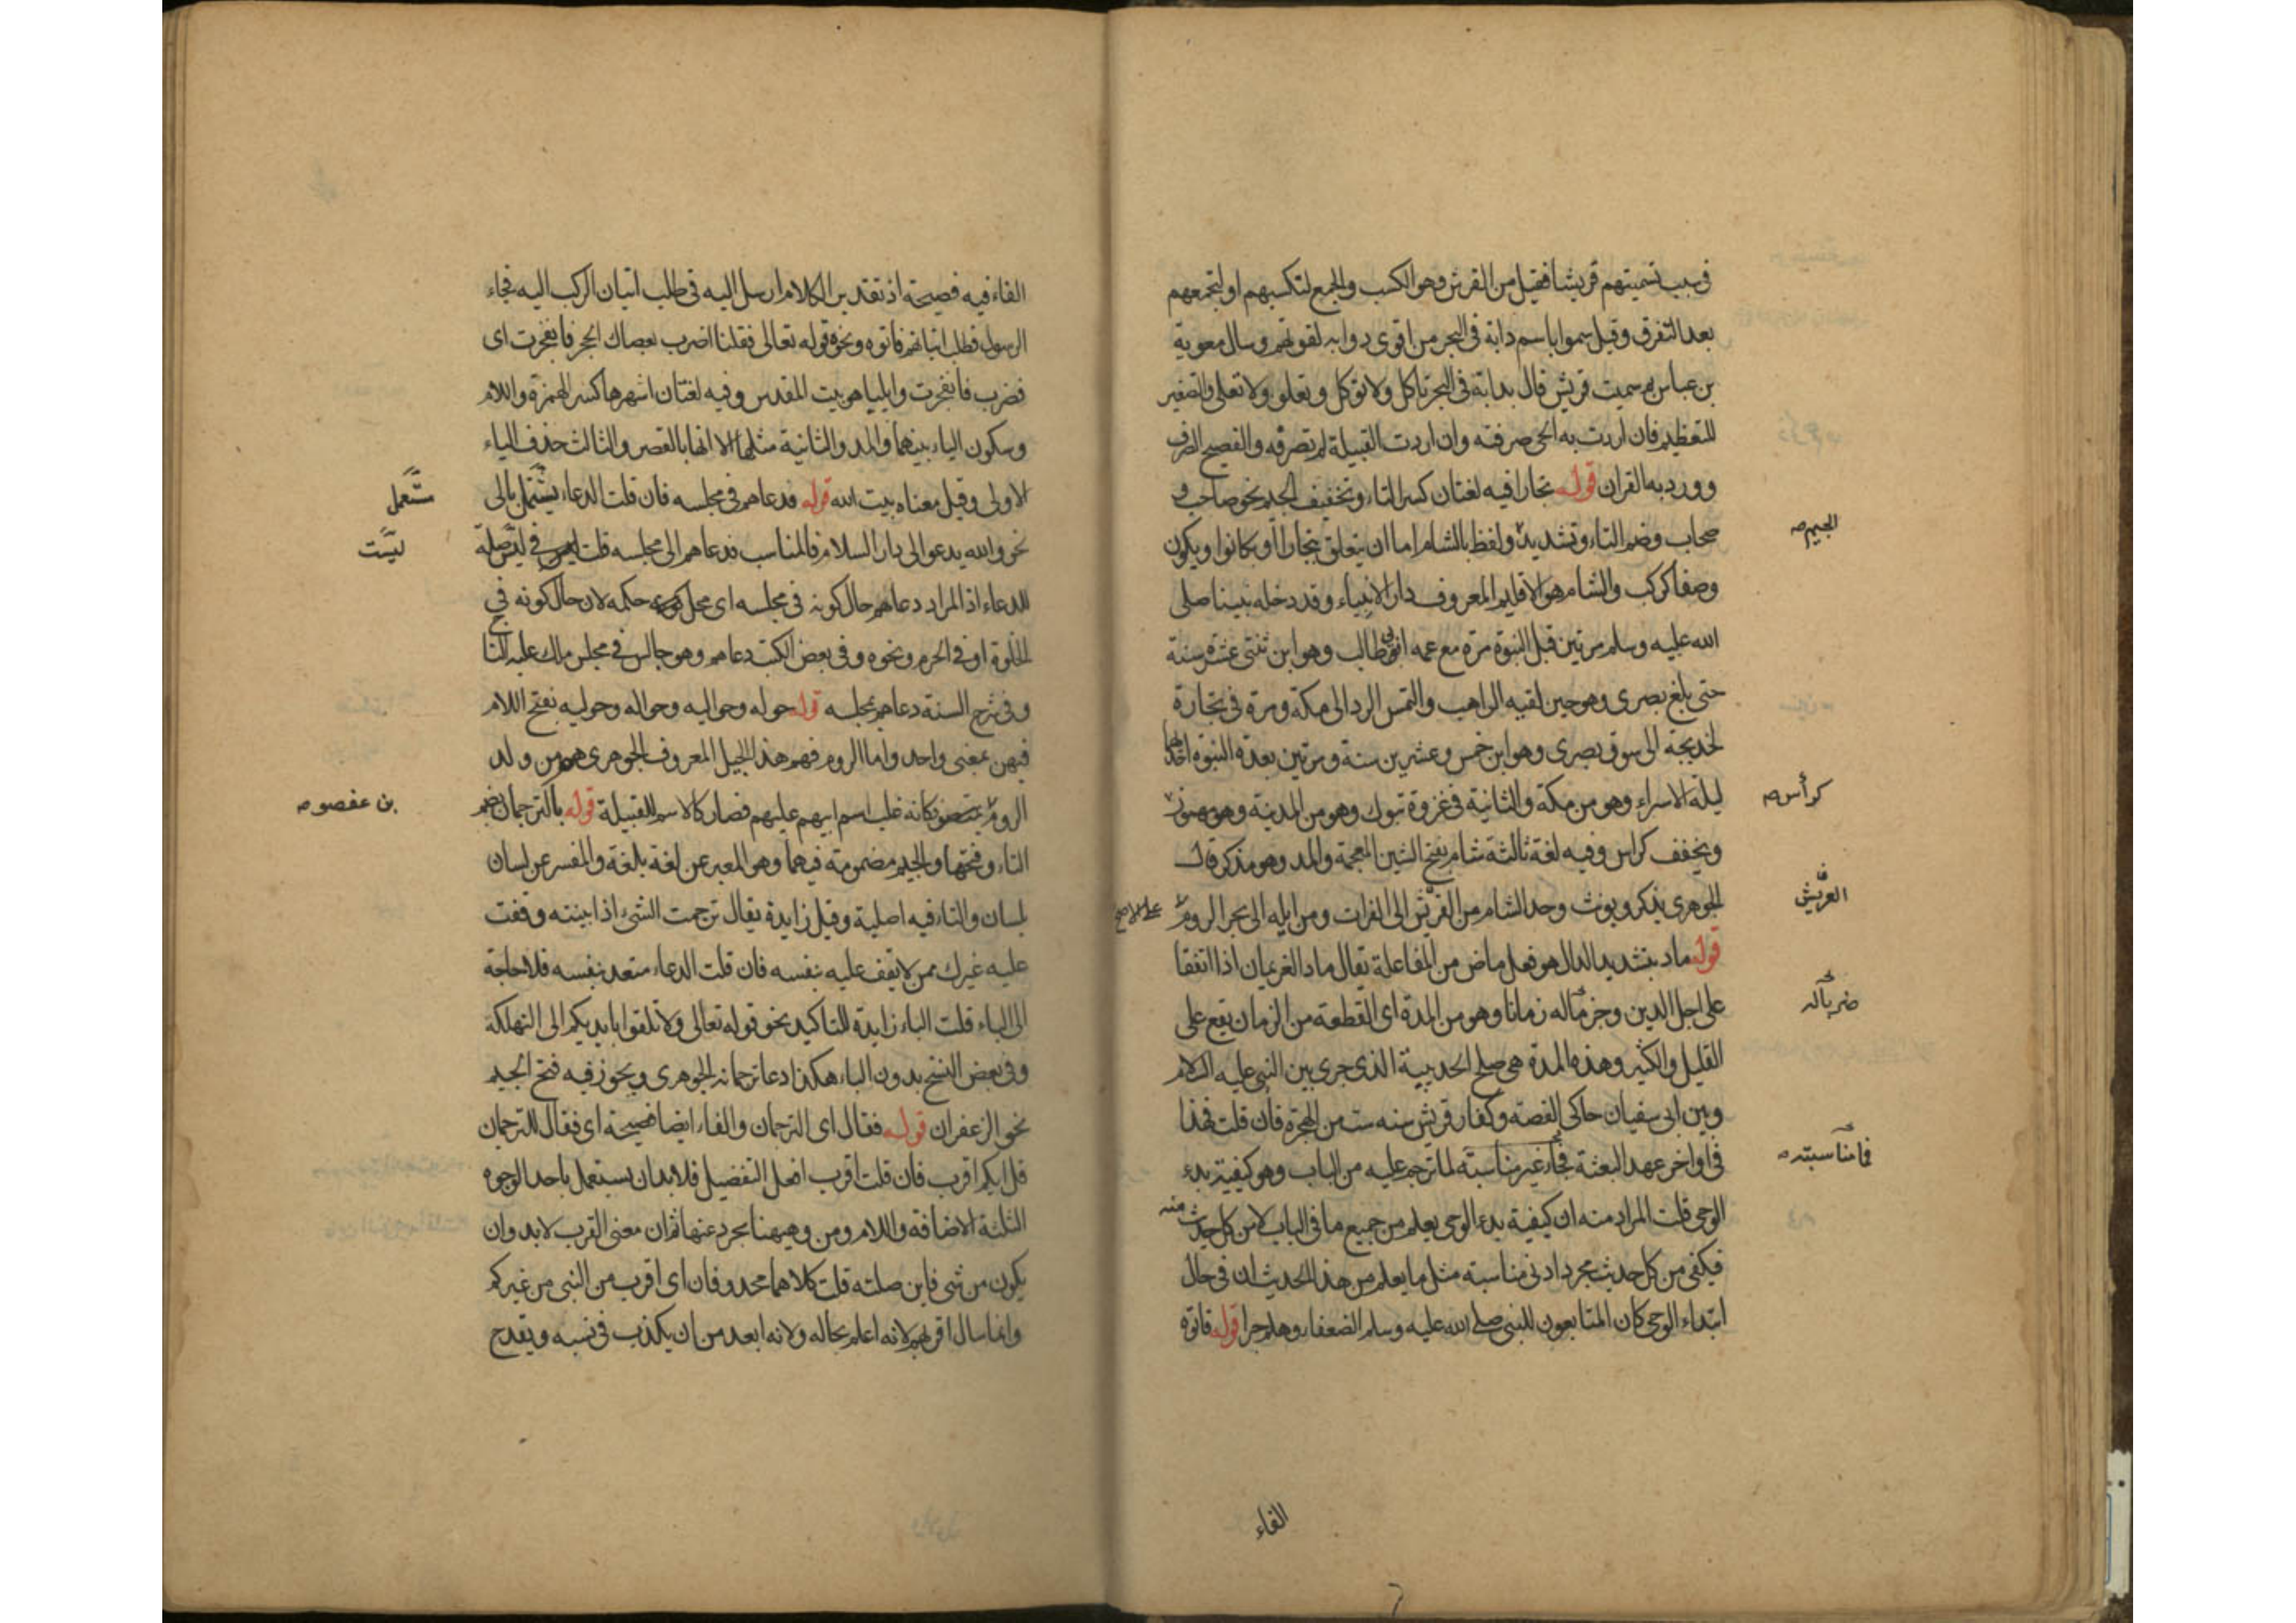 في سبب تسميتهم قريشا فقيل من القرش وهو الكسب والجمع لتكسبهم او لتجمعهم
بعد التفرق وقيل سموا باسم دابة في البحر من اقوى دوابه لقوتهم وسال معوية
بن عباس بم سميت قريش قال بدابة في البحر تاكل ولا توكل وتعلو ولا تعلى والتصغير
للتعظيم فان اردت به الحي صرفته وان اردت القبيلة لم تصرفه والفصيح الصرف
وورد به القران قوله تجارا فيه لغتان كسر التاء وتخفيف الجيم نحو صاحب و
صحاب وضم التاء وتشديد ولفظ بالشام اما ان يتعلق بتجارا او بكانوا ويكون
الجيم صه
وصفا كركب والشام هو الاقليم المعروف دار الانبياء وقد دخله نبينا صلى
الله عليه وسلم مرتين قبل النبوة مرة مع عمه ابي طالب وهو ابن ثنتي عشرة سنة
حتى بلغ بصرى وهو حين لقيه الراهب والتمس الرد الى مكة ومرة في تجارة
لخديجة الى سوق بصرى وهو ابن خمس وعشرين سنة ومرتين بعد النبوة احداهما
ليلة الاسراء وهو من مكة والثانية في غزوة تبوك وهو من المدينة وهو مهموز
كرأس صه
ويخفف كراس وفيه لغة ثالثة شام بفتح الشين المعجمة والمد وهو مذكر قال
الجوهري يذكر ويونث وحد الشام من العريش الى الفرات ومن ايله الى بحر الروم
العريش
على الاصح
قوله ماد بتشديد الدال هو فعل ماض من المفاعلة يقال ماد الغريمان اذا اتفقا
على اجل الدين وجزماله زمانا وهو من المدة اي القطعة من الزمان يقع على
ضربا له
القليل والكثير وهذه المدة هي صلح الحديبية الذي جرى بين النبي عليه السلام
وبين ابي سفيان حاكي القصة وكفار قريش سنه ست من الهجرة فان قلت فهذا
في اواخر عهد البعثة فجاء غير مناسبته لما ترجم عليه من الباب وهو كيفية بدء
فما مناسبته صه
الوحي قلت المراد منه ان كيفية بدء الوحي يعلم من جميع ما في الباب لا من كل حديث منه
فيكفي من كل حديث مجرد ادنى مناسبته مثل ما يعلم من هذا الحديث ان في حال
ابتداء الوحي كان المتابعون للنبي صلى الله عليه وسلم الضعفاء وهلم جرا قوله فاتوه
الفاء
الفاء فيه فصيحة اذ تقدير الكلام ارسل اليه في طلب اتيان الركب اليه فجاء
الرسول فطلب اتيانهم فاتوه ونحوه قوله تعالى فقلنا اضرب بعصاك الحجر فانفجرت اي
فضرب فانفجرت وايلياء هو بيت المقدس وفيه لغتان اشهرها كسر الهمزة واللام
وسكون الياء بينهما والمد والثانية مثلها الا انها بالقصر والثالث حذف الياء
الاولى وقيل معناه بيت الله قوله فدعاهم في مجلسه فان قلت الدعاء يشتمل بالى
ستعمل
نحو والله يدعو الى دار السلام فالمناسب فدعاهم الى مجلسه قلت في ليست صلة
ليست
للدعاء اذ المراد دعاهم حال كونه في مجلسه اي محل حكمه لان حال كونه في
الخلوة او في الحرم ونحوه وفي بعض الكتب دعاهم وهو جالس في مجلس ملك عليه التاج
وفي شرح السنة دعاهم لمجلسه قوله حوله وحواليه وحواله وحوليه بفتح اللام
فيهن بمعنى واحد واما الروم فهم هذا الجيل المعروف الجوهري هم من ولد
الروم بن عيصو كانه غلب اسم ابيهم عليهم فصار كالاسم للقبيلة قوله بالترجمان بضم
بن عفصو صه
التاء وفتحها والجيم مضمومة فيهما وهو المعبر عن لغة بلغة والمفسر عن لسان
بلسان والتاء فيه اصلية وقيل زايدة يقال ترجمت الشيء اذا بينته وقفت
عليه غيرك ممن لا يقف عليه بنفسه فان قلت الدعاء متعد بنفسه فلا حاجة
الى الباء قلت الباء زايدة للتاكيد نحو قوله تعالى ولا تلقوا بايديكم الى التهلكة
وفي بعض النسخ بدون الباء هكذا دعا ترجمانه الجوهري ويجوز فيه فتح الجيم
نحو الزعفران قوله فقال اي الترجمان والفاء ايضا فصيحة اي فقال للترجمان
قل ايكم اقرب فان قلت اقرب افعل التفضيل فلا بد ان يستعمل باحد الوجوه
الثلثة الاضافة واللام ومن وهيهنا مجرد عنها ثم ان معنى القرب لا بد وان
يكون من شي فاين صلته قلت كلاهما محذوفان اي اقرب من النبي من غيركم
وانما سال اقربهم لانه اعلم بحاله ولانه ابعد من ان يكذب في نسبه ويقدح